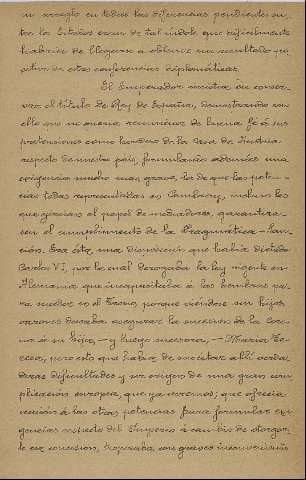 un arreglo en todas las diferencias pendientes en-
tre los Estados eran de tal índole que dificilmente
habrian de llegarse a obtener un resultado po-
sitivo en estas conferencias diplomáticas.
El Emperador insistia en conser-
var el titulo de Rey de España, demostrando con
ello que no queria renunciar de buena fé á sus
pretensiones como heredero de la Casa de Austria
respecto de nuestro pais, formulando además una
exigencia mucho mas grave, la de que las poten-
cias todas representadas en Cambray, incluso las
que ejercian el papel de mediadoras, garantizar-
an el cumplimiento de la Pragmatica-San-
ción. Era ésta, una disposicion que habia dictado
Carlos VI, por la cual derogaba la ley vigente en
Alemania que incapacitaba á las hembras pa-
ra suceder en el Trono, porque viéndose sin hijos
varones deseaba asegurar la sucesion de la Coro-
na á su hija, - y luego sucesora, - Maria Te-
resa, pero esto que habia de suscitar alli verda-
deras dificultades y ser origen de una gran com-
plicación europea, que ya veremos; que ofrecia
ocasión á las otras potencias para formular exi-
gencias respecto del Imperio á cambio de otorgar-
le esa concesion, tropezaba con graves inconvenientes